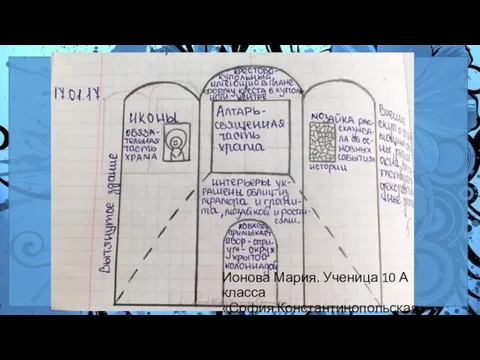 17.01.17.
крестово-
купольный,
имеющий в плане
форму креста в куполь
центре
Иконы
обяза-
тельная
часть
храма
Алтарь-
священная
часть
храма
мозайка рас-
сказыва-
ла об ос-
новных
событиях
истории
Вытянутое здание
интерьеры ук-
рашены облиц. из
мрамора и грани-
та, мозайкой и роспи-
сями.
примыкает
двор-атри-
ум-окруж
крытой
колоннадой
Ионова Мария. Ученица 10 А
класса
«София Константинопольская»